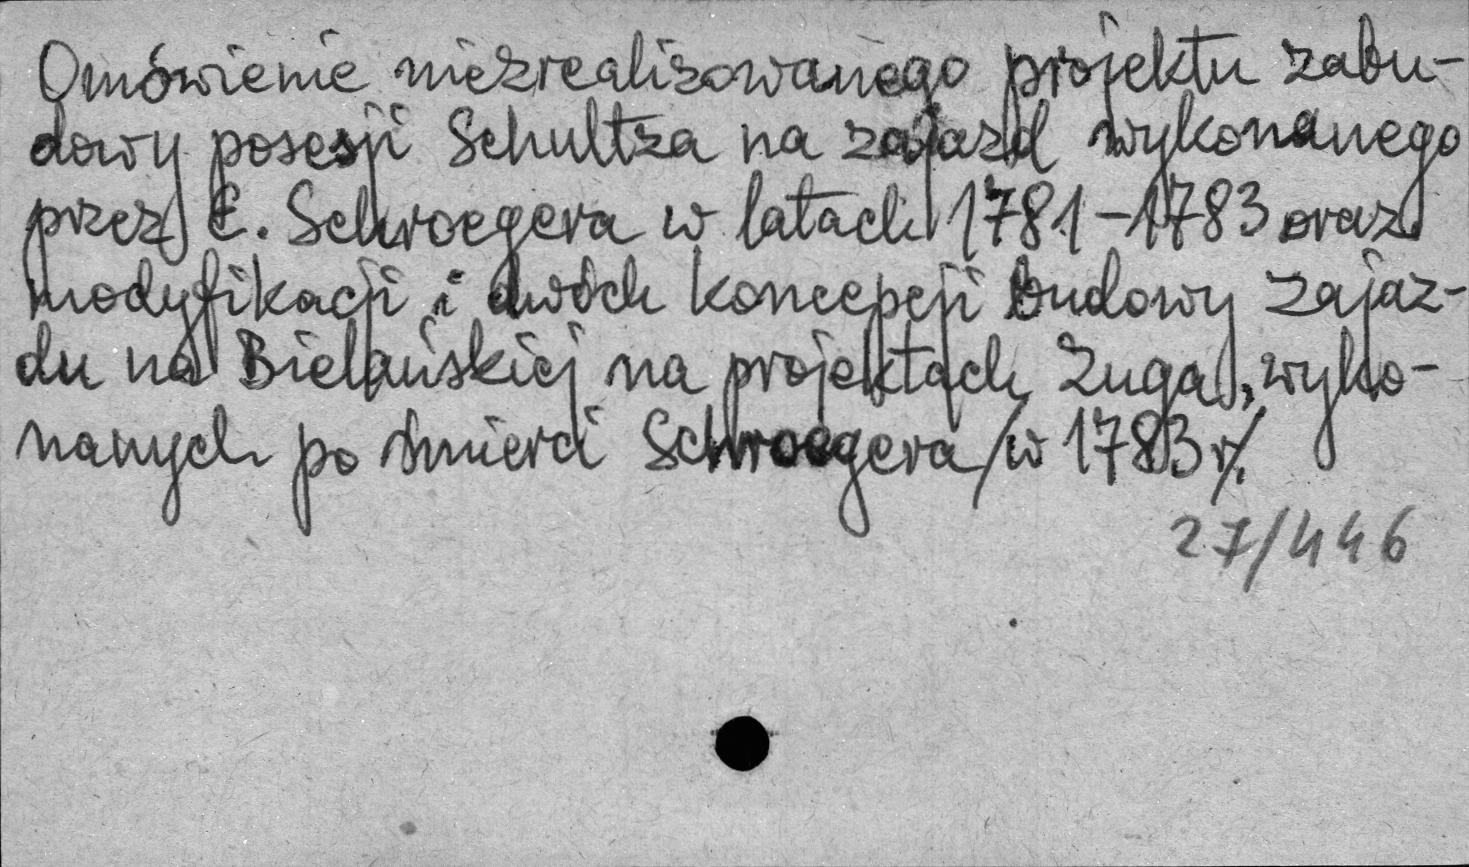 Omówienie niezrealizowanego projektu zabu-
dowy posesji Schultza na zajazd wykonanego
przez E. Schroegera w latach 1781-1783 oraz
modyfikacji i dwóch koncepcji budowy zajaz-
du na Bielańskiej na projektach Zuga, wyko-
nanych po śmierci Schroegera /w 1783 r/.
27/446